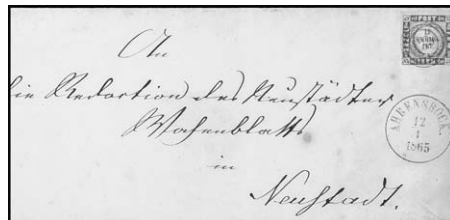 An
die Redaction des Neustädter
Wochenblatts
in
Neustadt.
POST
AHRENSBOECK.
12
1
1865